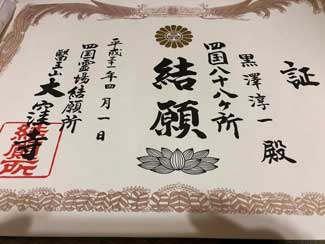 証
黒澤淳一殿
四国八十八ヶ所
結願
平成三十一年四月一日
四国霊場結願所
醫王山大窪寺
結願所